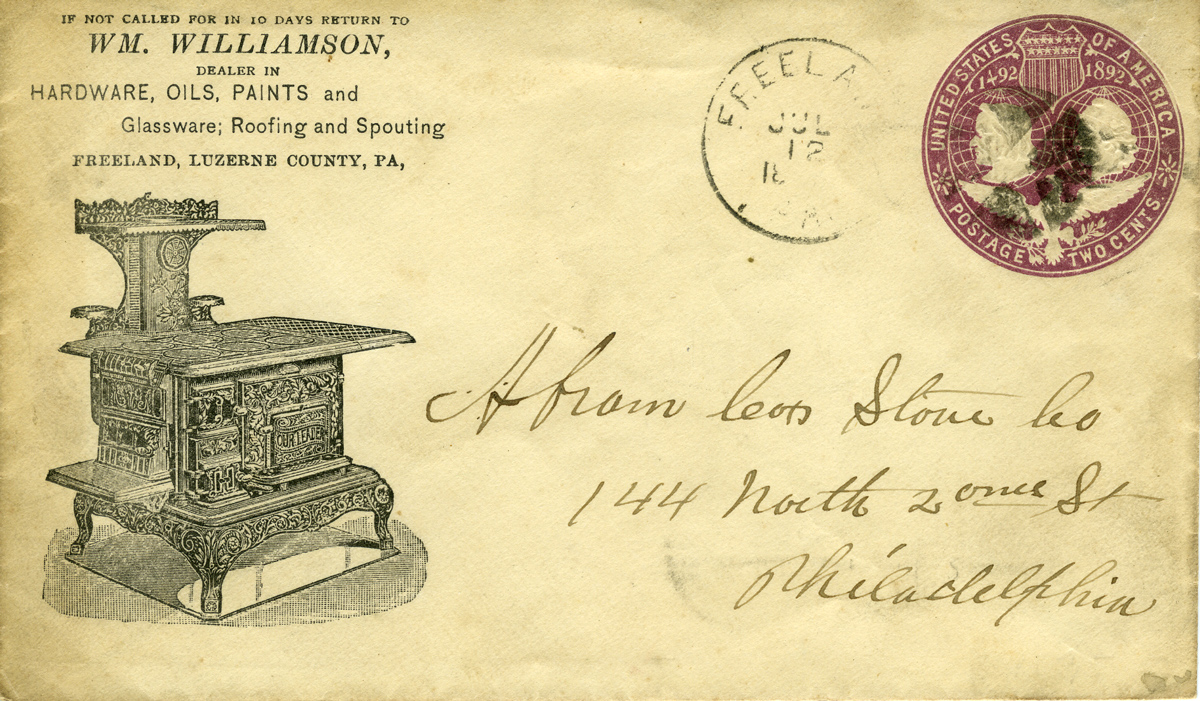 IF NOT CALLED FOR IN 10 DAYS RETURN TO
WM. WILLIAMSON,
DEALER IN
HARDWARE, OILS, PAINTS and
Glassware; Roofing and Spouting
FREELAND, LUZERNE COUNTY, PA,
FREELA
JUL
12
UNITED STATES OF AMERICA
1492 1892
POSTAGE TWO CENTS
OUR LEADER
Abram Cox Stove Co
144 North 2 St
Philadelphia